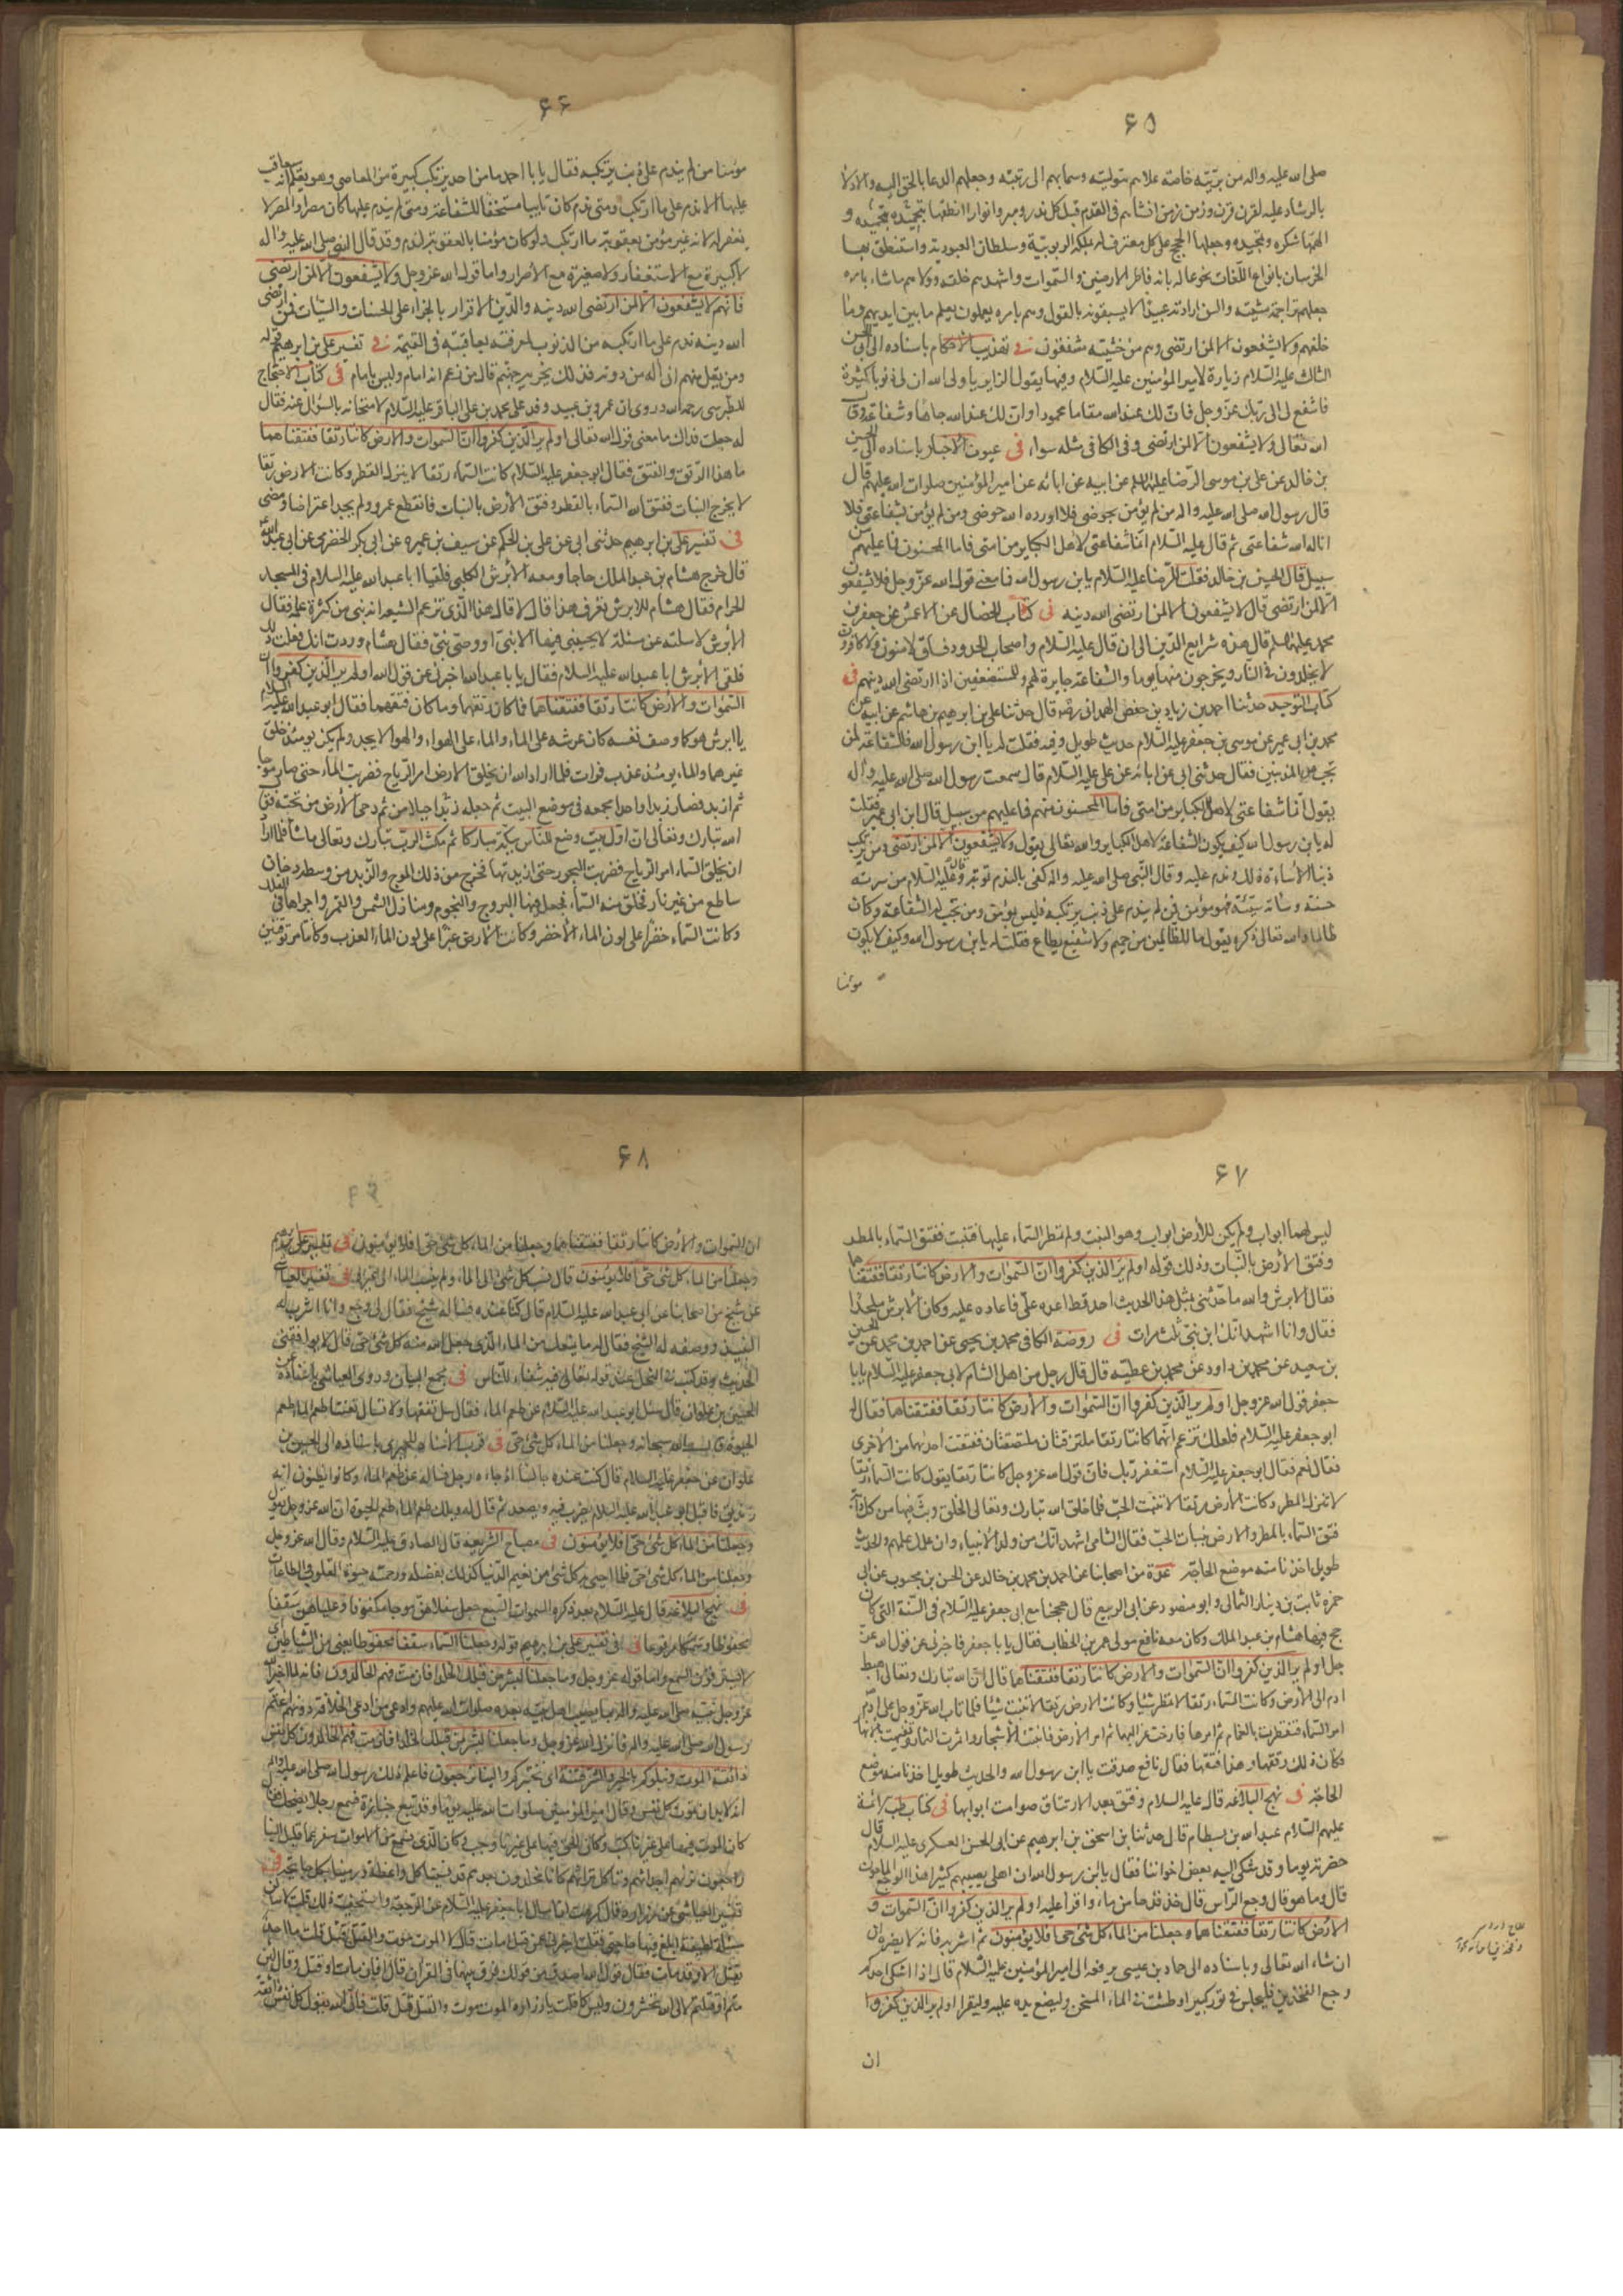 ۶۵
صلى الله عليه واله من بريّته خاصة علاهم بتوليته وسمابهم الى رتبته وجعلهم الدعا بالحق اليه والادلا
بالرشاد عليه لقرن قرن وزمن زمن انشاهم فى القدم قبل كل مذرو ومبرو انوارا انطقها بتحميده و
الهمها شكره وتمجيده وجعلها الحجج على كل معترف له بملكة الربوبيّة وسلطان العبودية واستنطق بها
الخرسان بانواع اللّغات بخوعا له بانه فاطر الارضين والسّموات واشهدهم خلقه وولاهم ماشاء بامره
جعلهم تراجمة مشيّته والسن ارادته عبيدا لا يسبقونه بالقول وهم بامره يعملون يعلم ما بين ايديهم وما
خلفهم ولا يشفعون الا لمن ارتضى وهم من خشيته مشفقون فى تهذيب الاحكام باسناده الى ابى الحسن
الثالث عليه السّلام زيارة لامير المؤمنين عليه السّلام وفيها يقول الزاير يا ولى الله ان لى ذنوبا كثيرة
فاشفع لى الى ربّك عزّ وجل فانّ لك عند الله مقاما محمودا وانّ لك عند الله جاها وشفاعة وقال
الله تعالى ولا يشفعون الا لمن ارتضى وفى الكافى مثله سواء فى عيون الاخبار باسناده الى الحسين
بن خالد عن على بن موسى الرّضا عليهما السلم عن ابيه عن ابائه عن امير المؤمنين صلوات الله عليهم قال
قال رسول الله صلى الله عليه واله من لم يؤمن بحوضى فلا اورده الله حوضى ومن لم يؤمن بشفاعتى فلا
اناله الله شفاعتى ثم قال عليه السّلام انّما شفاعتى لاهل الكباير من امتى فاما المحسنون فما عليهم من
سبيل قال الحسين بن خالد فقلت للرّضا عليه السّلام يا بن رسول الله فما معنى قول الله عزّ وجل فلا يشفعون
الا لمن ارتضى قال لا يشفعون الا لمن ارتضى الله دينه فى كتاب الخصال عن الاعمش عن جعفر بن
محمد عليهما السلم قال هذه شرايع الدّين الى ان قال عليه السّلام واصحاب الحدود فسّاق لا مؤمنون ولا كافرون
لا يخلدون فى النار ويخرجون منها يوما والشّفاعة جايزة لهم وللمستضعفين اذا ارتضى الله دينهم فى
كتاب التوحيد حدثنا احمد بن زياد بن جعفر الهمدانى رضه قال حدثنا على بن ابرهيم بن هاشم عن ابيه عن
محمد بن ابى عمير عن موسى بن جعفر عليه السّلام حديث طويل وفيه فقلت له يا ابن رسول الله فالشفاعة لمن
تجب من المذنبين فقال حدثنى ابى عن ابائه عن على عليه السّلام قال سمعت رسول الله صلى الله عليه واله
يقول انّما شفاعتى لاهل الكباير من امتى فاما المحسنون منهم فما عليهم من سبيل قال ابن ابى عمير فقلت
له يا بن رسول الله كيف يكون الشفاعة لاهل الكباير والله تعالى يقول ولا يشفعون الا لمن ارتضى ومن يرتكب
ذنبا الا ساءه ذلك وندم عليه وقال النّبى صلى الله عليه واله كفى بالندم توبة وقال عليه السلام من سرته
حسنة وساته سيّئة فهو مؤمن فان لم يندم على ذنب يرتكبه فليس بمؤمن ومن تجب له الشفاعة وكان
ظالما والله تعالى ذكره يقول ما للظالمين من حميم ولا شفيع يطاع فقلت له يا بن رسول الله وكيف لا يكون
مؤمنا
۶۶
مؤمنا من لم يندم على ذنب يرتكبه فقال يا با احمد ما من احد يرتكب كبيرة من المعاصى وهو يعلم انه سيعاقب
عليها الا ندم على ما ارتكب ومتى ندم كان تايبا مستحقا للشفاعة ومتى لم يندم عليها كان مصرا والمصر لا
يغفر له لانه غير مؤمن بعقوبة ما ارتكب ولو كان مؤمنا بالعقوبة لندم وقد قال النبى صلى الله عليه واله
لا كبيرة مع الاستغفار ولا صغيرة مع الاصرار واما قول الله عز وجل ولا يشفعون الا لمن ارتضى
فانهم لا يشفعون الا لمن ارتضى الله دينه والدّين الاقرار بالجزاء على الحسنات والسّيّات فمن ارتضى
الله دينه ندم على ما ارتكبه من الذنوب لمعرفته بعاقبته فى القيمة فى تفسير على بن ابرهيم قوله
ومن يقل منهم انى اله من دونه فذلك نجزيه جهنم قال من زعم انه امام وليس بامام فى كتاب الاحتجاج
للطبرسى رحمه الله وروى ان عمرو بن عبيد وفد على محمد بن على الباقر عليه السّلام لامتحانه بالسّؤال عنه فقال
له جعلت فداك ما معنى قوله تعالى اولم ير الّذين كفروا انّ السّموات والارض كانتا رتقا ففتقناهما
ما هذا الرّتق والفتق فقال ابو جعفر عليه السّلام كانت السّماء رتقا لا ينزل القطر وكانت الارض رتقا
لا يخرج النبات ففتق الله السّماء بالقطر وفتق الارض بالنبات فانقطع عمرو ولم يجد اعتراضا ومضى
فى تفسير على بن ابرهيم حدثنى ابى عن على بن الحكم عن سيف بن عميرة عن ابى بكر الحضرمى عن ابى عبد الله
قال خرج هشام بن عبد الملك حاجا ومعه الابرش الكلبى فلقيا ابا عبد الله عليه السلام فى المسجد
الحرام فقال هشام للابرش تعرف هذا قال لا قال هذا الذى تزعم الشيعة انه نبى من كثرة علمه فقال
الابرش لاسئلنه عن مسئلة لا يجيبنى فيها الا نبىّ او وصىّ نبىّ فقال هشام وددت انك فعلت ذلك
فلقى الابرش ابا عبد الله عليه السلام فقال يا با عبد الله اخبرنى عن قول الله اولم ير الّذين كفروا انّ
السّموات والارض كانتا رتقا ففتقناهما فما كان رتقهما وما كان فتقهما فقال ابو عبد الله عليه السلام
يا ابرش هو كما وصف نفسه كان عرشه على الماء والماء على الهواء والهوا لا يحد ولم يكن يومئذ خلق
غيرهما والماء يومئذ عذب فرات فلما اراد الله ان يخلق الارض امر الرّياح فضربت الماء حتى صار موجا
ثم ازبد فصار زبدا واحدا فجمعه فى موضع البيت ثم جعله جبلا من زبد ثم دحى الارض من تحته فقال
الله تبارك وتعالى ان اول بيت وضع للناس للذى ببكّة مباركا ثم مكث الربّ تبارك وتعالى ما شاء فلما اراد
ان يخلق السّماء امر الرياح فضربت البحور حتى ازبدتها فخرج من ذلك الموج والزبد من وسطه دخان
ساطع من غير نار فخلق منه السّماء فجعل فيها البروج والنجوم ومنازل الشمس والقمر واجراها فى الفلك
وكانت السّماء خضرا على لون الماء الاخضر وكانت الارض غبرا على لون الماء العذب وكانتا مرتوقتين
۶۷
ليس لهما ابواب ولم يكن للارض ابواب وهو النبت ولم تمطر السّماء عليها فتنبت ففتق السّماء بالمطر
وفتق الارض بالنّبات وذلك قوله اولم ير الذين كفروا انّ السّموات والارض كانتا رتقا ففتقناهما
فقال الابرش والله ما حدّثنى بمثل هذا الحديث احد قط اعده علىّ فاعاده عليه وكان الابرش ملحدا
فقال وانا اشهد انّك ابن نبىّ ثلث مرات فى روضة الكافى محمد بن يحيى عن احمد بن محمد عن الحسين
بن سعيد عن محمد بن داود عن محمد بن عطيّة قال قال رجل من اهل الشام لابى جعفر عليه السّلام يا با
جعفر قول الله عز وجل اولم ير الّذين كفروا انّ السّموات والارض كانتا رتقا ففتقناهما فقال له
ابو جعفر عليه السّلام فلعلك تزعم انّهما كانتا رتقا ملتزقتان ملتصقتان ففتقت احدهما من الاخرى
فقال نعم فقال ابو جعفر عليه السّلام استغفر ربّك فانّ قول الله عز وجل كانتا رتقا يقول كانت السّماء رتقا
لا تنزل المطر وكانت الارض رتقا لا تنبت الحبّ فلما خلق الله تبارك وتعالى الخلق وبثّ فيها من كل دابّة
فتق السّماء بالمطر والارض بنبات الحبّ فقال الشامى اشهد انّك من ولد الانبياء وان علمك علمهم والحديث
طويل اخذنا منه موضع الحاجة عدّة من اصحابنا عن احمد بن محمد بن خالد عن الحسن بن محبوب عن ابى
حمزة ثابت بن دينار الثمالى وابو منصور عن ابى الربيع قال حججنا مع ابى جعفر عليه السّلام فى السّنة التى كان
حج فيها هشام بن عبد الملك وكان معه نافع مولى عمر بن الخطاب فقال يا با جعفر فاخبرنى عن قول الله عزّ و
جل اولم ير الذين كفروا انّ السّموات والارض كانتا رتقا ففتقناهما قال ان الله تبارك وتعالى اهبط
ادم الى الارض وكانت السّماء رتقا لا تمطر شيئا وكانت الارض رتقا لا تنبت شيئا فلما تاب الله عزّ وجل على ادم
امر السّماء فتفطرت بالغمام ثم امرها فارخت عزاليها ثم امر الارض فانبتت الاشجار واثمرت الثمار وتفيهت بالانهار
وكان ذلك رتقها وهذا فتقها فقال نافع صدقت يا ابن رسول الله والحديث طويل اخذنا منه موضع
الحاجة فى نهج البلاغة قال عليه السلام وفتق بعد الارتتاق صوامت ابوابها فى كتاب طب الائمة
عليهم السّلام عبد الله بن بسطام قال حدثنا بن اسحق بن ابرهيم عن ابى الحسن العسكرى عليه السلام قال
حضرته يوما وقد شكى اليه بعض اخواننا فقال يا ابن رسول الله ان اهلى يصيبهم كثيرا هذا الوجع الملعون
قال وما هو قال وجع الرّاس قال خذ قدحا من ماء واقرا عليه اولم ير الذين كفروا انّ السّموات و
الارض كانتا رتقا ففتقناهما وجعلنا من الماء كل شىء حى افلا يؤمنون ثم اشربه فانه لا يضره ان
ان شاء الله تعالى وباسناده الى حماد بن عيسى يرفعه الى امير المؤمنين عليه السّلام قال اذا اشكى احدكم
وجع الفخذين فليجلس فى تور كبير او طشت فى الماء المسخن وليضع يده عليه وليقرا اولم ير الذين كفروا
ان
۶۸
ان السّموات والارض كانتا رتقا ففتقناهما وجعلنا من الماء كل شىء حىّ افلا يؤمنون فى تفسير على بن ابرهيم
وجعلنا من الماء كل شىء حىّ افلا يؤمنون قال نسب كل شىء الى الماء ولم ينسب الماء الى غيره فى تفسير العياشى
عن شيخ من اصحابنا عن ابى عبد الله عليه السّلام قال كنّا عنده فساله شيخ فقال لى وجع وانا اشرب له
النبيذ ووصفه له الشيخ فقال له ما يمنعك من الماء الّذى جعل الله منه كل شىء حى قال لا يوافقنى
الحديث وقد كتب فى النحل عند قوله تعالى فيه شفاء للنّاس فى مجمع البيان وروى العياشى باسناده عن
الحسين بن علوان قال سئل ابو عبد الله عليه السّلام عن طعم الماء فقال سل تفقها ولا تسال تعنتا طعم الماء طعم
الحيوة قال الله سبحانه وجعلنا من الماء كل شىء حىّ فى قرب الاسناد للحميرى باسناده الى الحسين بن
علوان عن جعفر عليه السلام قال كنت عنده جالسا اذ جاءه رجل فساله عن طعم الماء وكانوا يظنون انه
زنديق فاقبل ابو عبد الله عليه السلام يضرب فيه ويصعد ثم قال له ويلك طعم الماء طعم الحيوة ان الله عز وجل يقول
وجعلنا من الماء كل شىء حىّ افلا يؤمنون فى مصباح الشريعة قال الصادق عليه السّلام وقال الله عز وجل
وجعلنا من الماء كل شىء حىّ فكما احيى به كل شىء من نعيم الدّنيا كذلك بفضله ورحمته حيوة القلوب فى الطاعات
فى نهج البلاغة قال عليه السّلام بعد ذكره السّموات السّبع جعل سفلاهن موجا مكفوفا وعلياهن سقفا
محفوظا وسمكا مرفوعا فى تفسير على بن ابرهيم قوله وجعلنا السّماء سقفا محفوظا يعنى من الشياطين اى
لا يسترقون السّمع واما قوله عز وجل وما جعلنا لبشر من قبلك الخلد افان متّ فهم الخالدون فانه لما اخبر الله
عز وجل نبيّه صلى الله عليه واله بما يصيب اهل بيته بعده صلوات الله عليهم وادعى من ادعى الخلافة دونهم اغتم
رسول الله صلى الله عليه واله فانزل الله عز وجل وما جعلنا لبشر من قبلك الخلد افان متّ فهم الخالدون كل نفس
ذائقة الموت ونبلوكم بالخير والشّر فتنة اى نختبركم والينا ترجعون فاعلم ذلك رسول الله صلى الله عليه واله
انه لا بد ان تموت كل نفس وقال امير المؤمنين صلوات الله عليه يوما وقد تبع جنازة فسمع رجلا يضحك فقال
كان الموت فيها على غيرنا كتب وكان الحق فيها على غيرنا وجب وكان الّذى نسمع من الاموات سفر عما قليل الينا
راجعون ننزلهم اجداثهم وناكل تراثهم كانا مخلدون بعدهم قد نسينا كل واعظة ورمينا بكل جايحة فى
تفسير العياشى عن زرارة قال كرهت ان اسال ابا جعفر عليه السّلام عن الرجعة واستخفيت ذلك قلت لاسالن
مسئلة لطيفة ابلغ فيها حاجتى فقلت اخبرنى عمن قتل امات قال لا الموت موت والقتل قتل قلت ما احد
يقتل الا وقد مات فقال قول الله اصدق من قولك فرق بينهما فى القران قال افان مات او قتل وقال لئن
متم او قتلتم لالى الله تحشرون وليس كما قلت يا زرارة الموت موت والقتل قتل قلت فانّ الله يقول كل نفس ذائقة